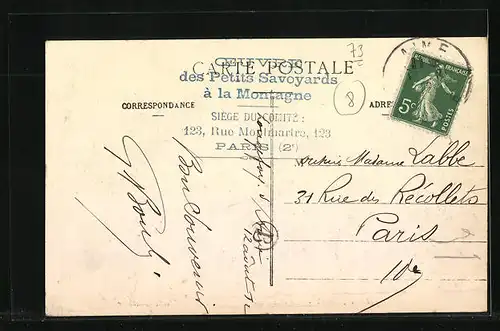 CARTE POSTALE
ŒUVRE
des Petits Savoyards
à la Montagne
SIÈGE DU COMITÉ :
123, Rue Montmartre, 123
PARIS (2e)
73
8
AIME
RÉPUBLIQUE FRANÇAISE
5c
POSTES
CORRESPONDANCE
ADRES
Bon Souvenir
Madame Labbe
31 Rue des Récollets
Paris
10e